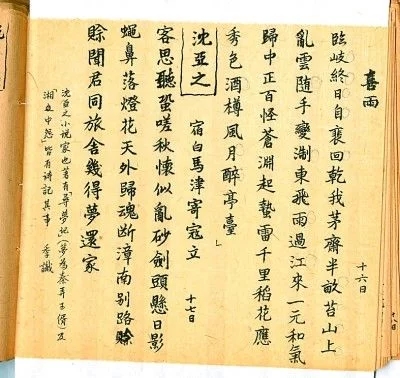 喜雨
十六日
臨岐終日自襄回乾我茅齋半畝苔山上
亂雲隨手變淛東飛雨過江來一元和氣
歸中正百怪蒼淵起蟄雷千里稻花應
秀色酒樽風月醉亭臺
沈亞之
宿白馬津寄寇立
十七日
客思聽蛩嗟秋懷似亂砂劍頭懸日影
蠅鼻落燈花天外歸魂斷漳南別路賒
賒聞君同旅舍幾得夢還家
沈亞之小說家也著有「尋夢記」(夢為秦弄玉壻)及
湘中怨」皆有詩記其事 季識